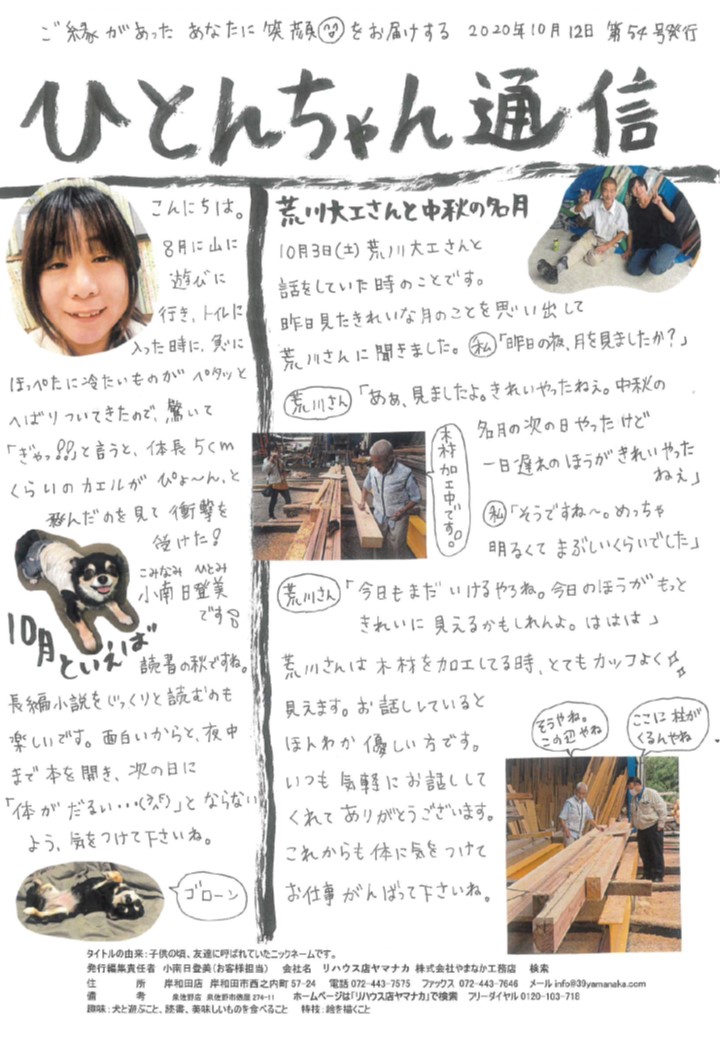 ご縁があった あなたに 笑顔をお届けする 2020年10月12日 第54号発行
ひとんちゃん通信
こんにちは。
8月に山に
遊びに
行き、トイレに
入った時に、急に
ほっぺたに冷たいものが ペタッと
へばりついてきたので、驚いて
「ぎゃっ!!」と言うと、体長5cm
くらいのカエルが ぴょ〜ん、と
飛んだのを見て 衝撃を
受けた!
こみなみ ひとみ
小南日登美
です
10月といえば
読書の秋ですね。
長編小説をじっくりと読むのも
楽しいです。面白いからと、夜中
まで本を開き、次の日に
「体が だるい・・・」とならない
よう、気をつけて下さいね。
ゴローン
荒川大工さんと中秋の名月
10月3日(土)荒川大工さんと
話をしていた時のことです。
昨日見たきれいな月のことを思い出して
荒川さんに聞きました。 私「昨日の夜、月を見ましたか?」
荒川さん「あぁ、見ましたよ。きれいやったねぇ。中秋の
名月の次の日やったけど
一日遅れのほうがきれいやった
ねぇ」
木材加工中です。
私「そうですね〜。めっちゃ
明るくて まぶしいくらいでした」
荒川さん「今日もまだ いけるやろね。今日のほうがもっと
きれいに見えるかもしれんよ。ははは」
荒川さんは 木材を加工してる時、とてもカッコよく
見えます。お話ししていると
ほんわか 優しい方です。
いつも 気軽に お話しして
くれて ありがとうございます。
これからも体に気をつけて
お仕事がんばって下さいね。
そうやね。
この辺やね
ここに柱が
くるんやね
タイトルの由来:子供の頃、友達に呼ばれていたニックネームです。
発行編集責任者 小南日登美(お客様担当) 会社名 リハウス店ヤマナカ 株式会社やまなか工務店 検索
住 所 岸和田店 岸和田市西之内町57-24 電話072-443-7575 ファックス 072-443-7646 メール info@39yamanaka.com
備 考 泉佐野店 泉佐野市 274-11 ホームページは「リハウス店ヤマナカ」で検索 フリーダイヤル 0120-103-718
趣味:犬と遊ぶこと、読書、美味しいものを食べること 特技:絵を描くこと